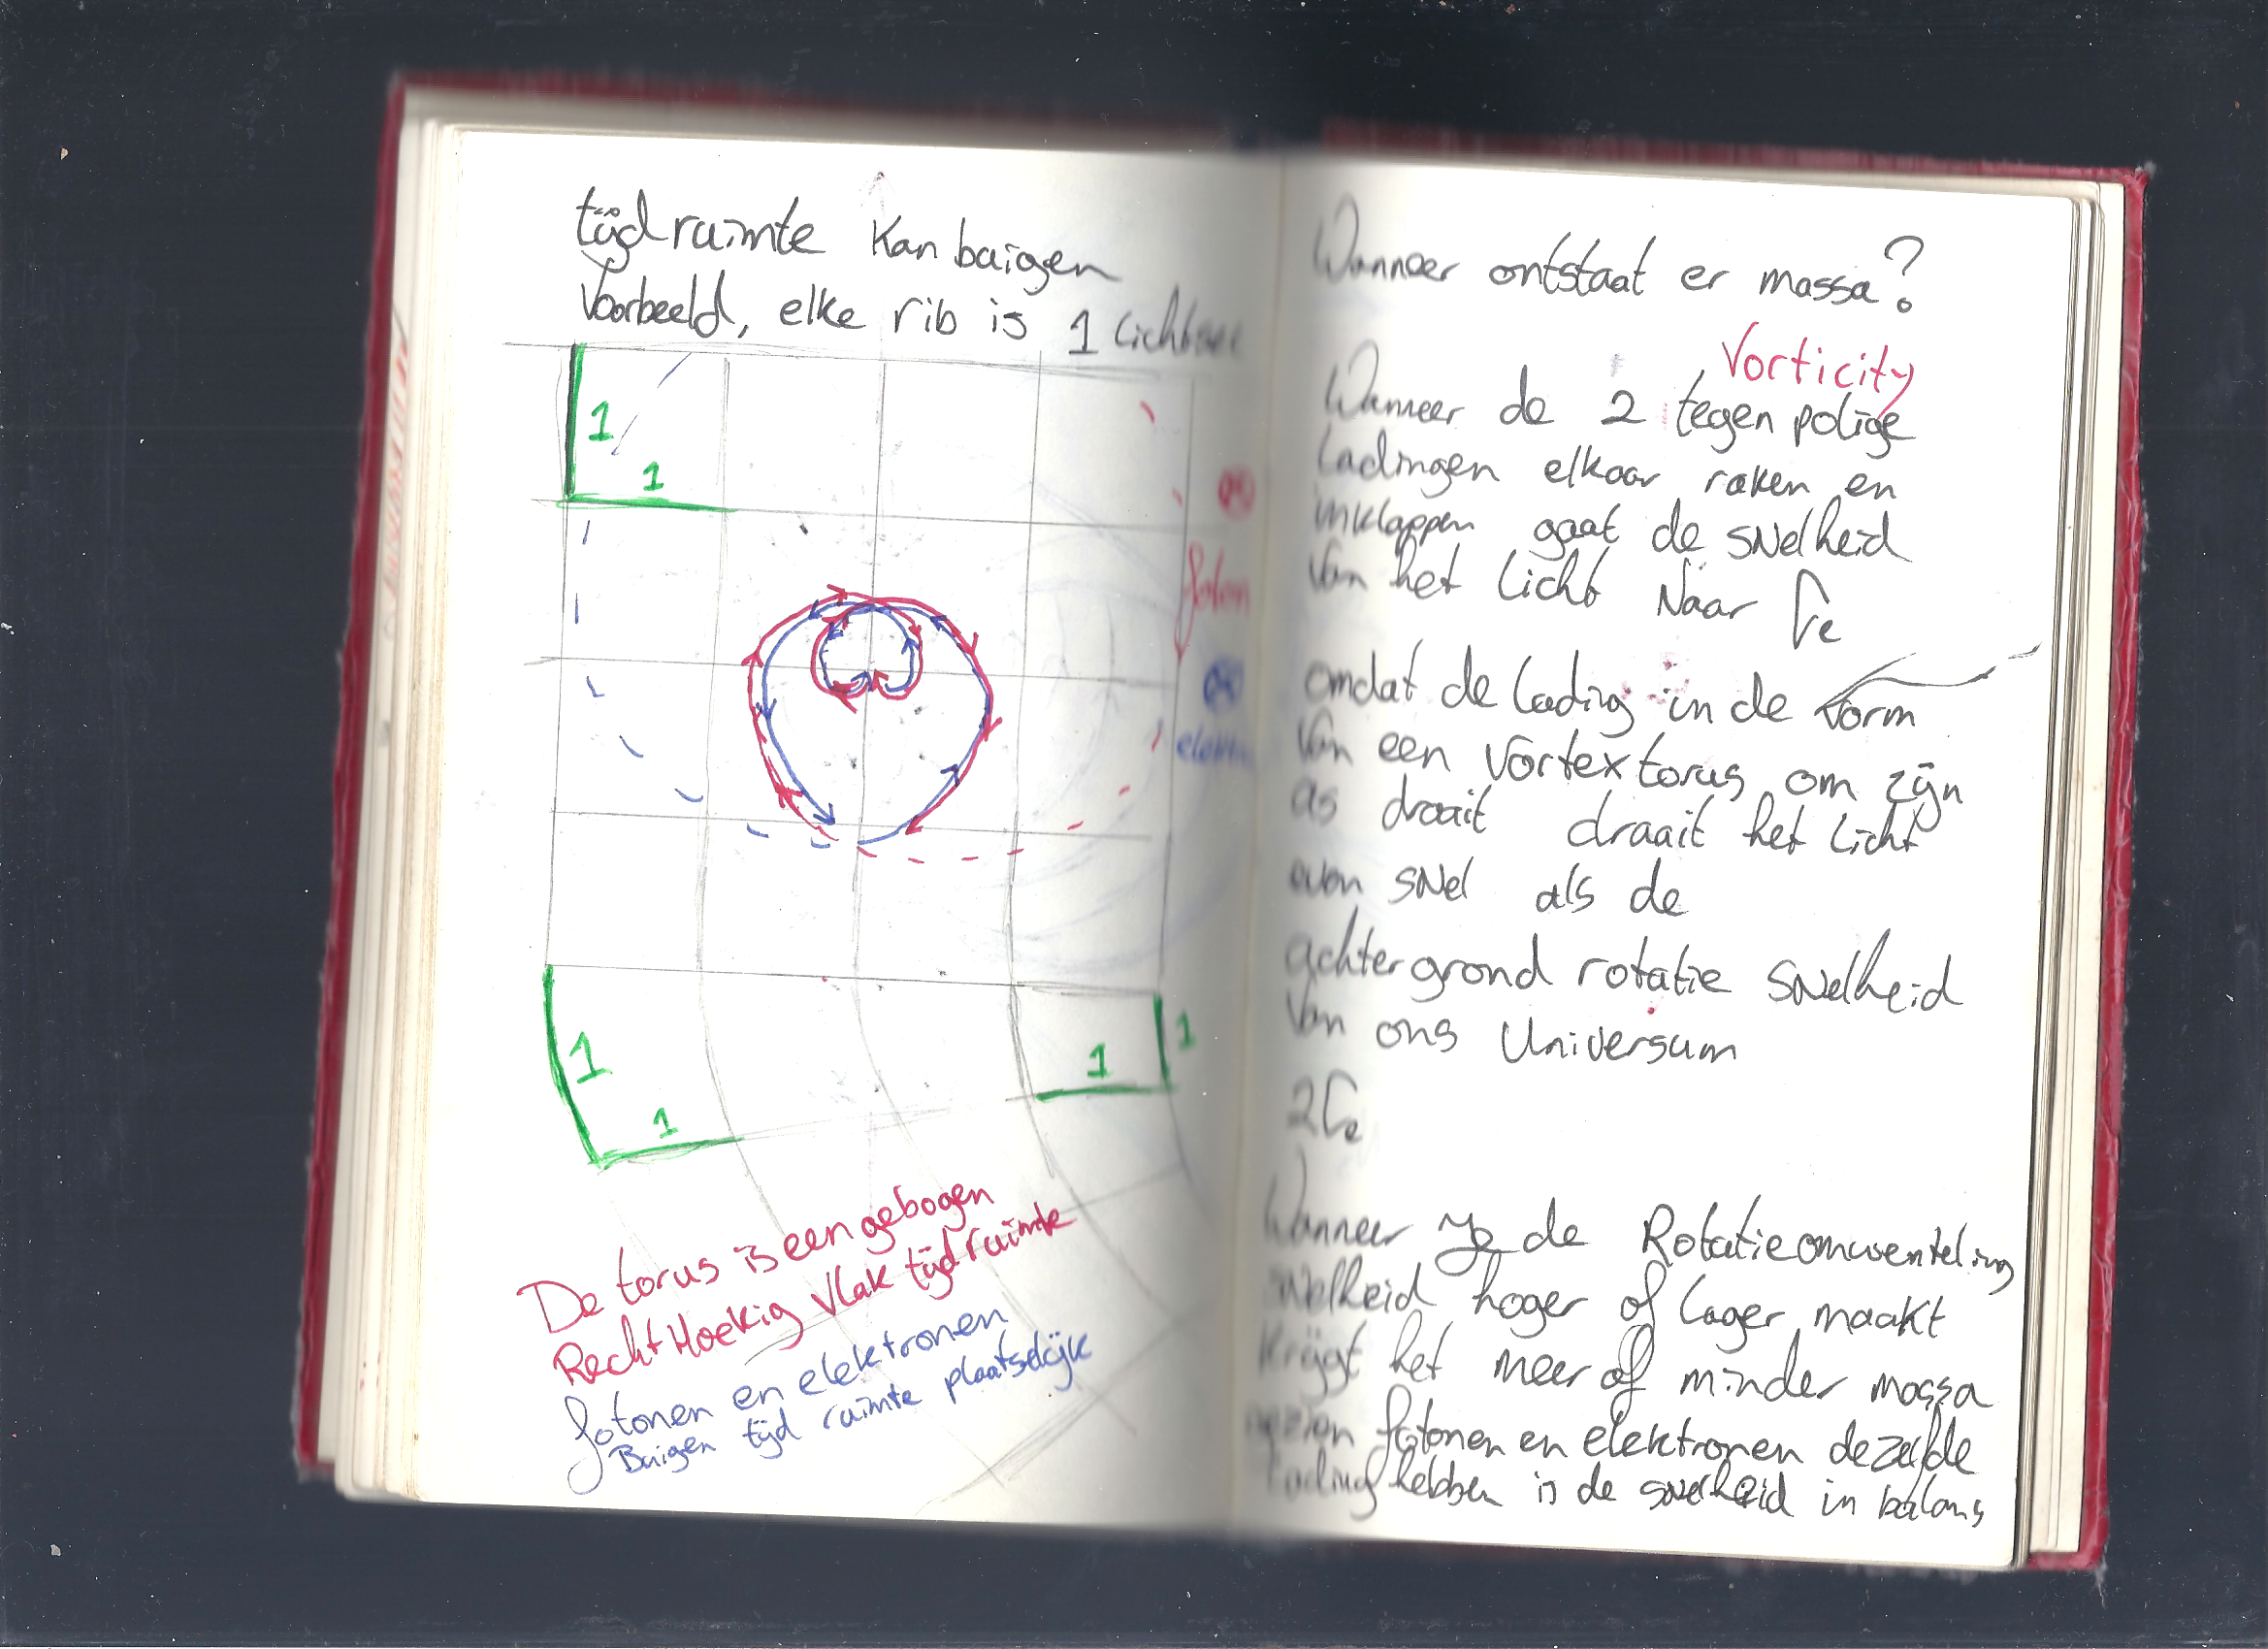 tijdruimte kan buigen
Voorbeeld, elke rib is 1 Lichtsec
1
1
foton
elektr
1
1
1
1
De torus is een gebogen
RechtHoekig vlak tijdruimte
fotonen en elektronen
Buigen tijd ruimte plaatselijk
Wanneer ontstaat er massa?
Vorticity
Wanneer de 2 tegen polige
Ladingen elkaar raken en
inklappen gaat de snelheid
van het licht Naar Ce
omdat de lading in de vorm
Van een Vortex torus om zijn
as draait draait het licht
even snel als de
achtergrond rotatie snelheid
Van ons Universum
2Ce
Wanneer je de Rotatieomwenteling
snelheid hoger of lager maakt
Krijgt het meer of minder massa
gezien fotonen en elektronen dezelfde
Lading hebben is de snelheid in balans